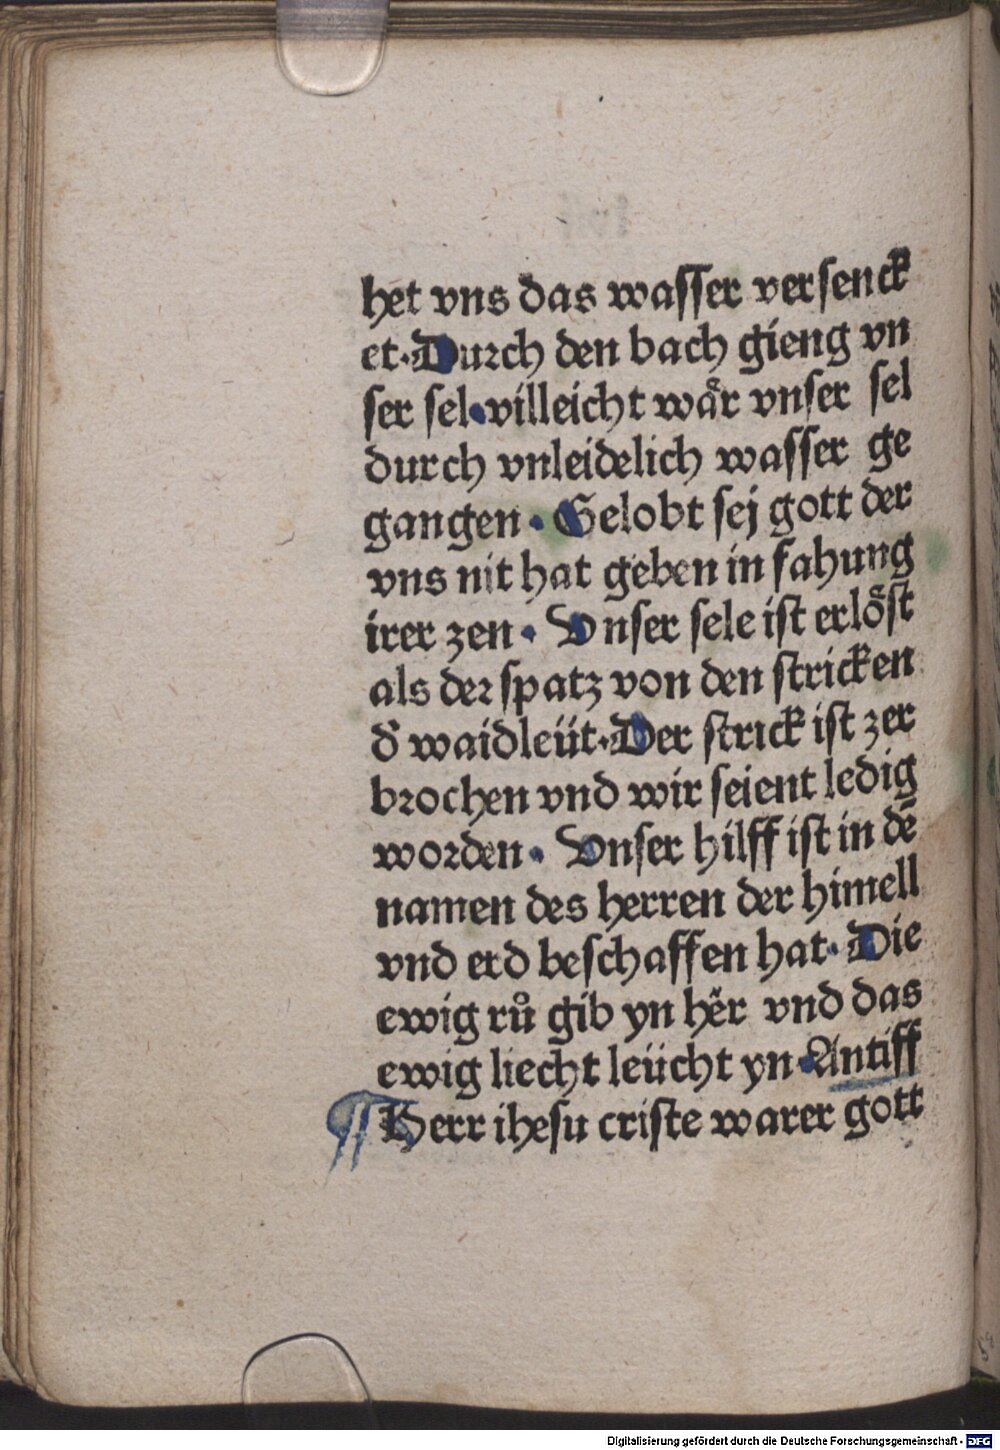 het vns das wasser versenck
et·Durch den bach gieng vn
ser sel·villeicht wäꝛ vnser sel
durch vnleidelich wasser ge
gangen· Gelobt sej gott der
vns nit hat geben in fahung
irer zen· Vnser sele ist erlöst
als deꝛ spatz von den stricken
d̕ waidleüt·Der strick ist zer
bꝛochen vnd wir seient ledig
woꝛden· Vnser hilff ist in dē
namen des herren der himell
vnd erd beschaffen hat· Die
ewig rů gib yn hër vnd das
ewig liecht leücht yn·Antiff
¶ Herr ihesu criste warer gott
Digitalisierung gefördert durch die Deutsche Forschungsgemeinschaft - DFG